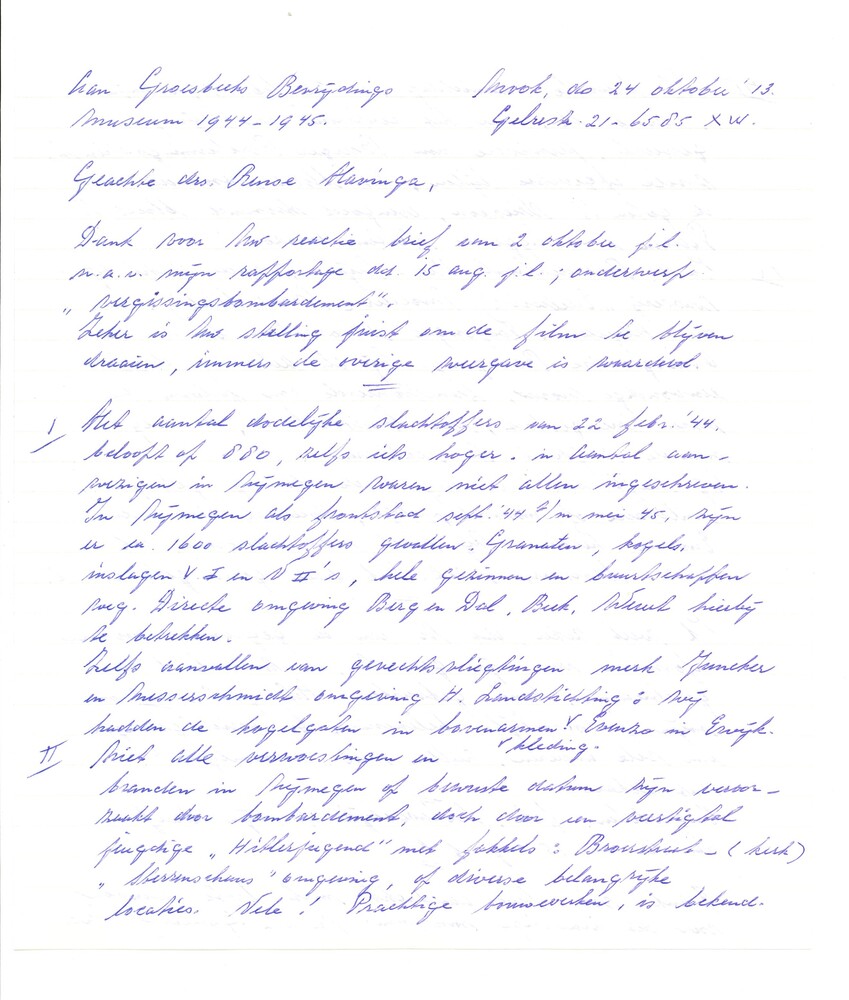 Aan Groesbeeks Bevrijdings Mook, do 24 oktober '13.
Museum 1944-1945. Gelrestr. 21 - 6585 XW.
Geachte drs. Rense Havinga,
Dank voor Uw reactie brief van 2 oktober j.l.
n.a.v. mijn rapportage dd. 15 aug. j.l.; onderwerp
"vergissingsbombardement".
Zeker is Uw stelling juist om de film te blijven
draaien, immers de overige weergave is waardevol.
I Het aantal dodelijke slachtoffers van 22 febr. '44.
beloopt op 880, zelfs iets hoger. in aantal aan-
wezigen in Nijmegen waren niet allen ingeschreven.
In Nijmegen als frontstad sept. '44 t/m mei 45, zijn
er ca. 1600 slachtoffers gevallen. Granaten, kogels,
inslagen V I en V II's, hele gezinnen en buurtschappen
weg. Directe omgeving Berg en Dal, Beek, hierbij
te betrekken.
Zelfs aanvallen van gevechtsvliegtuigen merk Juncker
en Messerschmidt omgeving H. Landstichting: wij
hadden de kogelgaten in bovenarmen! Evenzo in Ewijk.
kleding.
II Niet alle verwoestingen en
branden in Nijmegen op bewuste datum zijn veroor-
zaakt door bombardement, doch door een veertigtal
jeugdige "Hitlerjugend" met fakkels: Broerstraat - (kerk)
omgeving, of diverse belangrijke
locaties. Vele! Prachtige bouwwerken, is bekend.